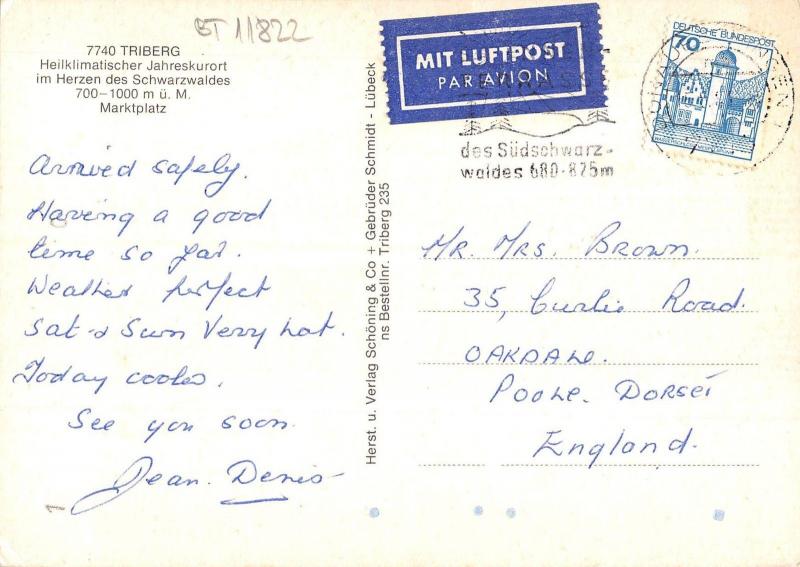 BT 11822
7740 TRIBERG
Heilklimatischer Jahreskurort
im Herzen des Schwarzwaldes
700–1000 m ü. M.
Marktplatz
Arrived safely.
Having a good
time so far.
Weather perfect
Sat & Sun Very hot.
Today cooler.
See you soon
Jean. Denis
Herst. u. Verlag Schöning & Co + Gebrüder Schmidt - Lübeck
ns Bestellnr. Triberg 235
MIT LUFTPOST
PAR AVION
des Südschwarz-
waldes 680-875m
DEUTSCHE BUNDESPOST
70
Mr. Mrs. Brown.
35, Road.
OAKDALE.
POOLE. DORSET
England.